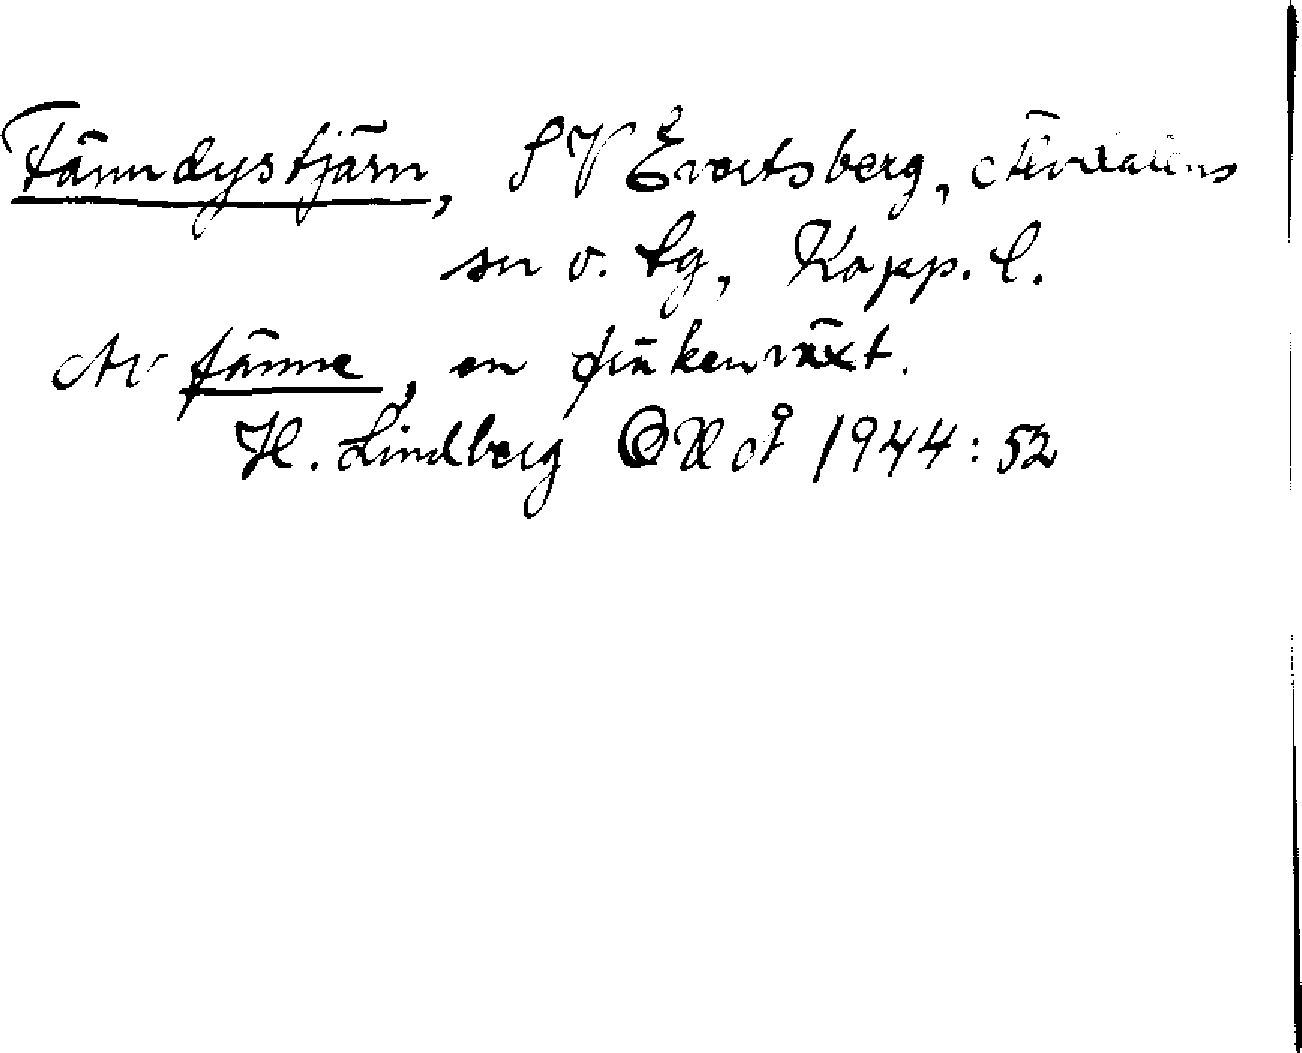 Fänndystjärn, SV Evertsberg, Älvdalens
sn o. tg, Kopp. l.
Av fänne, en fräkenväxt.
H. Lindberg OUÅ 1944:52